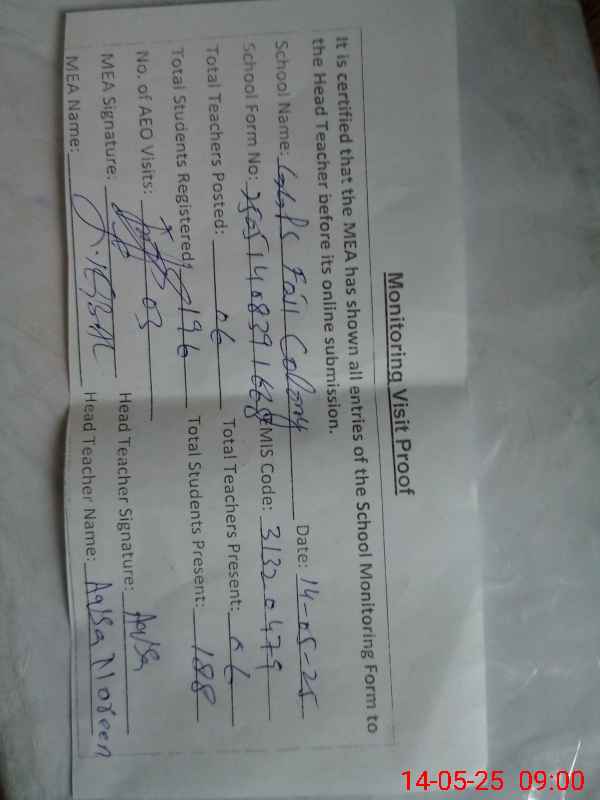 Monitoring Visit Proof
It is certified that the MEA has shown all entries of the School Monitoring Form to
the Head Teacher before its online submission.
School Name: Colony Date: 14-05-25
School Form No: EMIS Code: 31320479
Total Teachers Posted: 06 Total Teachers Present: 06
Total Students Registered: 196 Total Students Present: 188
No. of AEO Visits: 03
MEA Signature: Head Teacher Signature: Aqsa
MEA Name: Head Teacher Name: Aqsa Noreen
14-05-25 09:00